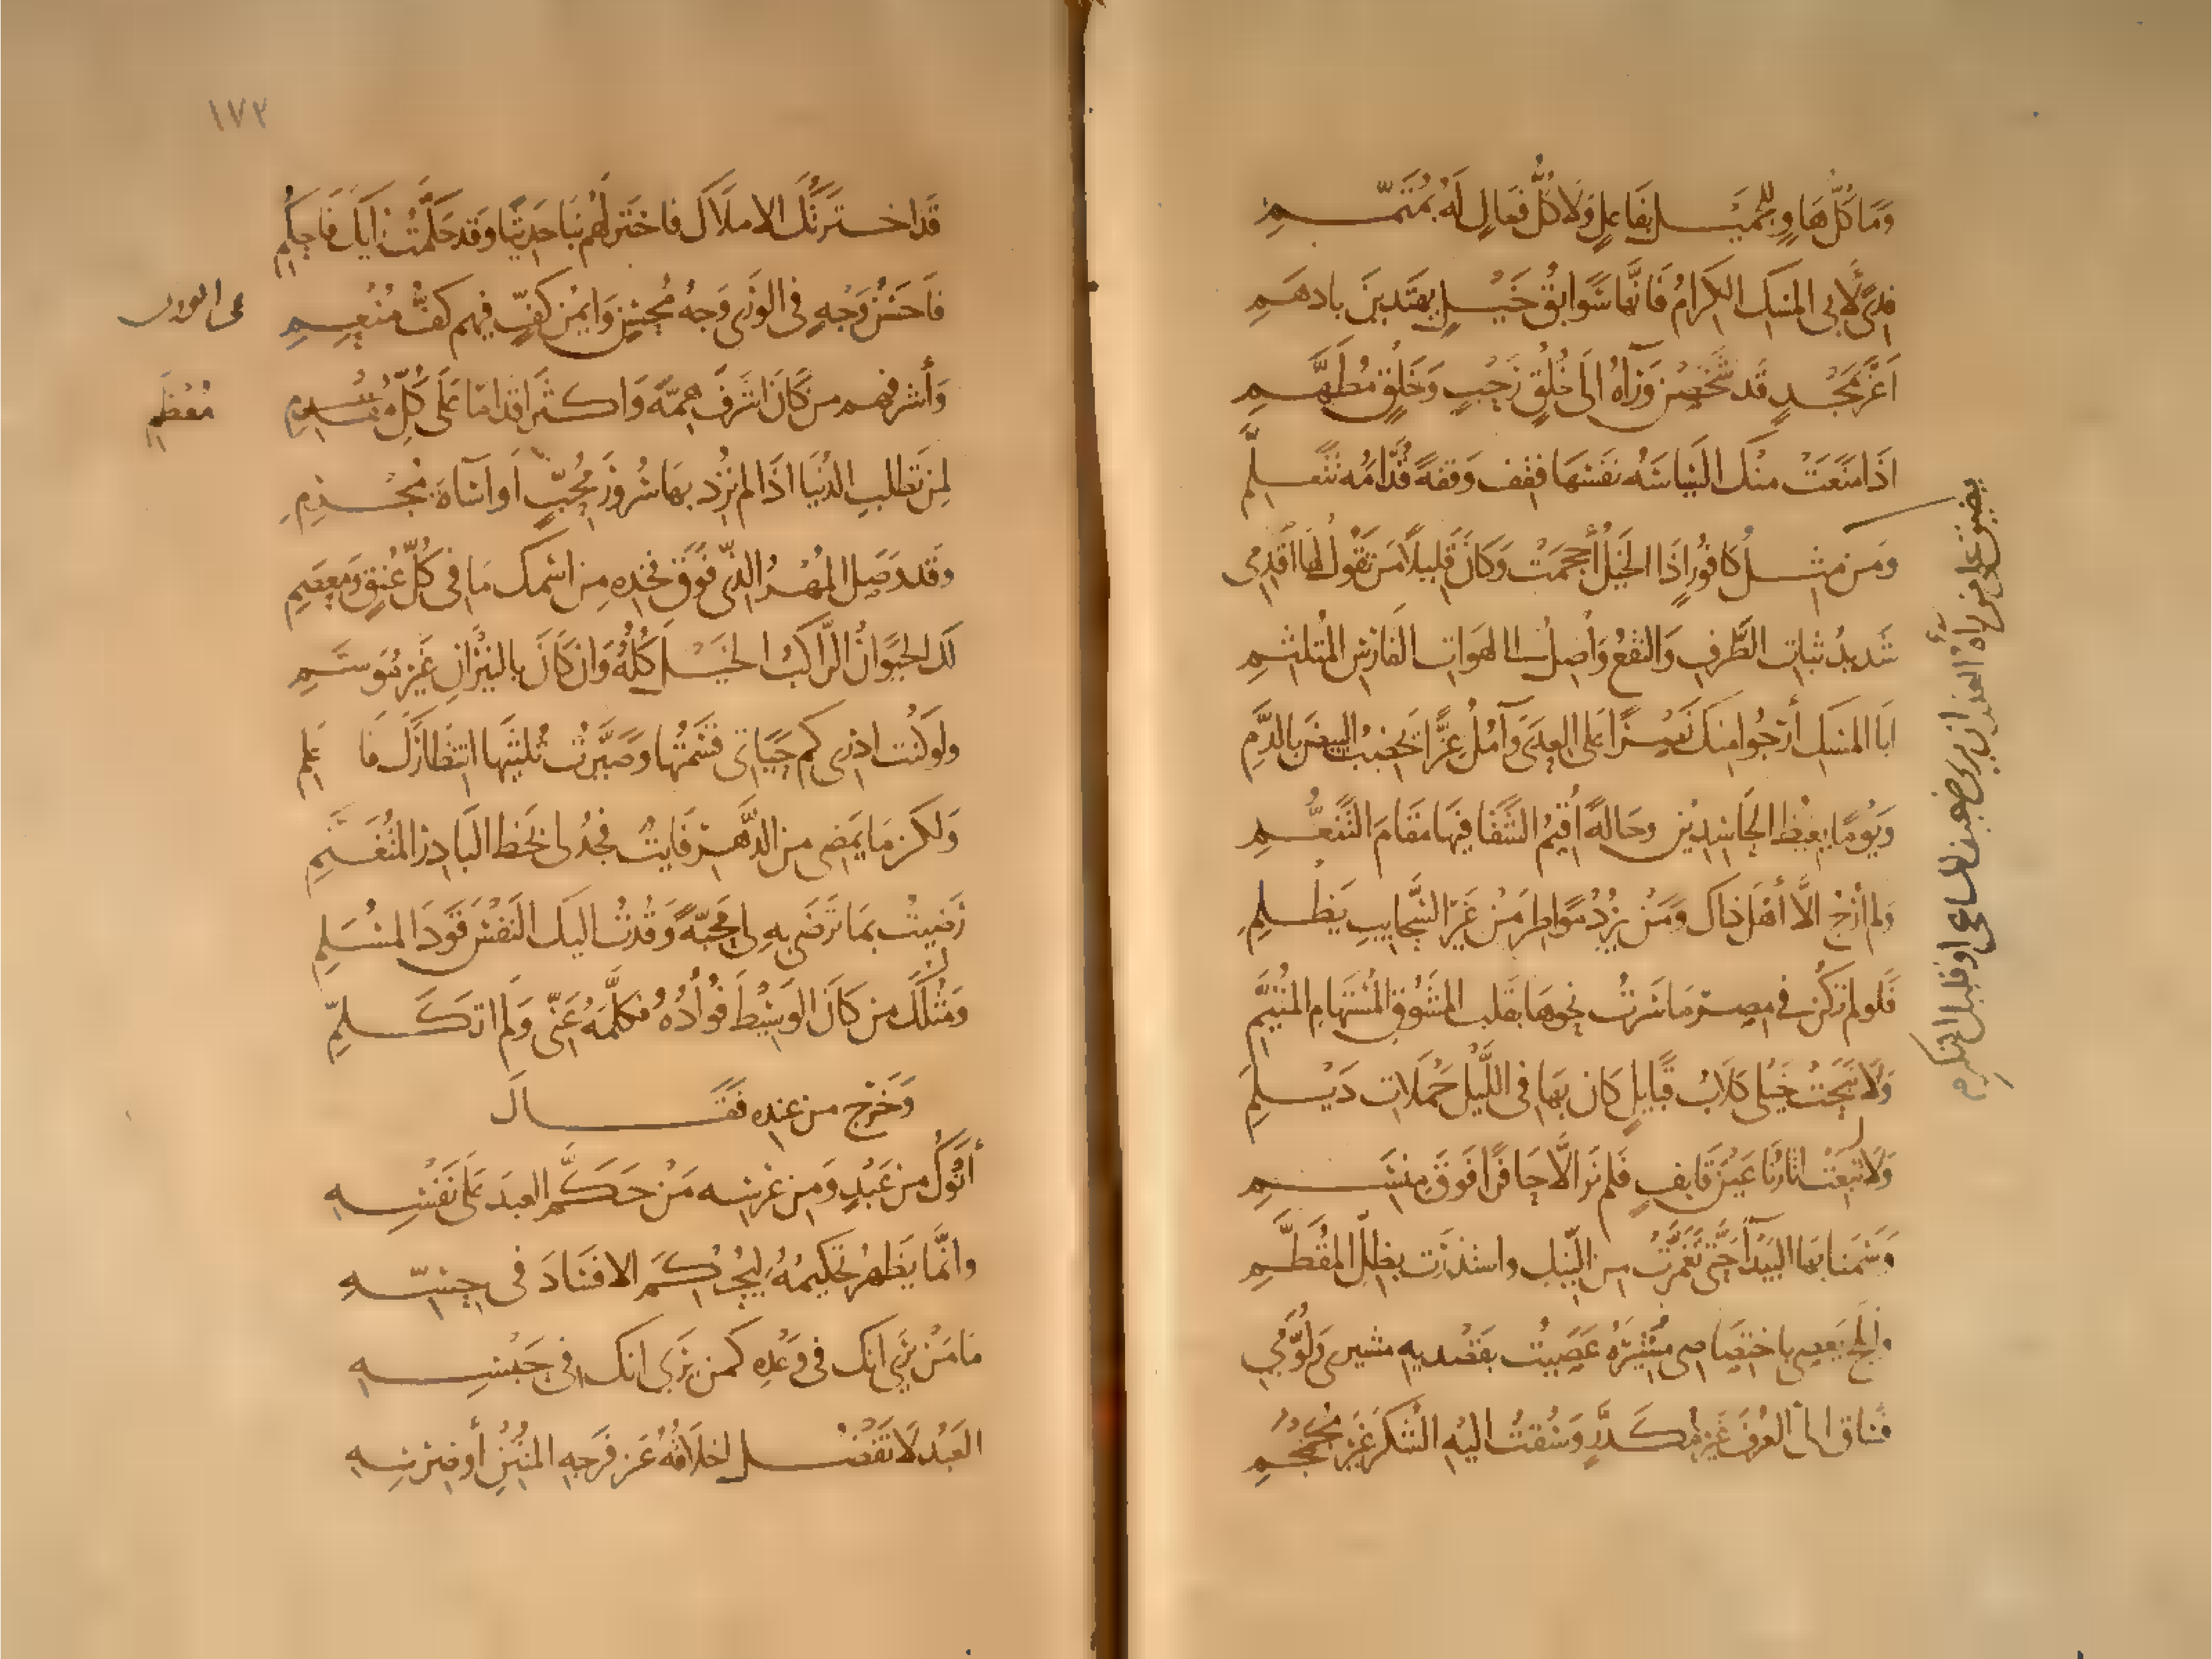 وَمَا كُلُّ هَاوٍ لِلْجَمِيْلِ بِفَاعِلٍ وَلَا كُلُّ فَعَالٍ لَهُ بِمُتَمِّمِ
فِدًى لِأَبِي المِسْكِ الكِرَامُ فَانَّهَا سَوَابِقُ خَيْلٍ يَهْتَدِيْنَ بِادْهَمِ
اَغَرَّ بِمَجْدٍ قَد شَخَصْنَ وَرَآهُ اِلَى خُلُقٍ رَحْبٍ وَخَلْقٍ مُطَهَّمِ
اذَا مَنَعَتْ مِنْكَ السِّيَاسَةُ نَفْسَهَا فَقِفْ وَقْفَةً قُدَّامَهُ تَتَعَلَّمِ
وَمَن مِثْلُ كَافُورٍ اذَا الخَيْلُ أَحْجَمَتْ وَكَانَ قَلِيْلًا مَن يَقُولُ لَهَا اقْدِمِي
شَدِيدُ ثَبَاتِ الطَّرْفِ وَالنَّقْعُ وَاصِلٌ الى لهَوَاتِ الفَارِسِ المُتَلَثِّمِ
ابَا المِسْكِ أَرْجُوا مِنْكَ نَصْرًا عَلَى العِدَى وَآمُلُ عِزًّا يَخْضِبُ البِيْضَ بِالدَّمِ
وَيَوْمًا يَغِيظُ الحَاسِدِيْنَ وَحَالَةً اُقِيْمُ الشَّقَا فِيْهَا مَقَامَ التَّنَعُّمِ
وَلم أَرْجُ الَّا أَهْلَ ذَاكَ وَمَنْ يُرِدْ مَوَاطِرَ مِنْ غَيْرِ السَّحَايِبِ يَظْلِمِ
فَلَو لم تَكُنْ فى مِصْرَ مَا سِرْتُ نَحْوَهَا بِقَلْبِ المَشُوْقِ المُسْتَهَامِ المُتَيَّمِ
وَلَا نَبَحَتْ خَيْلى كِلَابُ قَبَايِلٍ كَان بِهَا فِى اللَّيْلِ حَمَلَاتِ دَيْلَمِ
وَلَا تَبِعَتْ اثَارَنَا عَيْنُ قَايِفٍ فَلم تَرَ الَّا حَافِرًا فَوْقَ مِنْسَمِ
وَسَمْنَا بِهَا البَيْدَآءَ حَتَّى تَغَمَّرَتْ مِنَ النِّيْلِ وَاسْتَذْرَتْ بِظِلِّ المُقَطَّمِ
وَابْلَجَ يَعْصِى بِاخْتِصَاصِى مُشِيْرَهُ عَصَيْتُ بِقَصْدِيْهِ مُشِيرِى وَلُوَّمِي
فَسَاقَ الىَّ العُرْفَ غَيْرَ مُكَدَّرٍ وَسُقْتُ الَيْهِ الشُّكْرَ غَيْرَ مُجَمْجَمِ
١٧٢
قَد اخْتَرْتُكَ الامْلَاكَ فَاخْتَرْ لَهُمْ بِنَا حَدِيْثًا وَقَد حَكَّمْتُ رَايَكَ فَاحْكُمِ
فَاَحْسَنُ وَجْهٍ فى الوَرَى وَجْهُ مُحْسِنٍ وَايْمَنُ كَفٍّ فِيْهِم كَفُّ مُنْعِمِ
وَأَشْرَفُهُم مَن كَانَ اشْرَفَ هِمَّةً وَاَكْثَرَ اقْدَامًا عَلَى كُلِّ مُقْدِمِ
مُعْظَمِ
لِمَن تَطْلُبِ الدُّنْيَا اذَا لم تُرِدْ بِهَا سُرُورَ مُحِبٍّ اَو اسَاةَ مُجْرِمِ
وَقَد وَصَلَ المُهْرُ الَّذِى فَوْقَ فَخْذِهِ مِن اسْمِكَ مَا فى كُلِّ عُنْقٍ وَمِعْصَمِ
لَكَ الحَيَوَانُ الرَّاكِبُ الخَيْلَ كُلُّهُ وَان كَانَ بِالنِّيْرَانِ غَيْرَ مُوَسَّمِ
وَلَو كُنْتُ ادْرِى كَم حَيَاتِى قَسَمْتُهَا وَصَيَّرْتُ ثُلْثَيْهَا انْتِظَارَكَ فَاعْلَمِ
وَلَكِنَّ مَا يَمْضِى مِن الدَّهْرِ فَايِتٌ فَجُدْ لى بِحَظِّ البَادِرِ المُتَغَنِّمِ
رَضِيْتُ بِمَا تَرْضَى بِهِ لى مَحَبَّةً وَقُدْتُ الَيْكَ النَّفْسَ قَوْدَ المُسَلِّمِ
وَمِثْلُكَ مَن كَانَ الوَسِيْطَ فُؤَادُهُ فَكَلَّمَهُ عَنِّى وَلَم اتَكَلَّمِ
وَخَرَجَ مِن عِنْدِهِ فَقَالَ
أَنْوَكُ مِن عَبْدٍ وَمِن عِرْسِهِ مَنْ حَكَّمَ العَبْدَ عَلَى نَفْسِهِ
وَانَّمَا يُظْهِرُ تَحْكِيْمُهُ لِيُحْكِمَ الافْسَادَ فى حِسِّهِ
مَا مَنْ يَرَى انَّكَ فى وَعْدِهِ كَمَن يَرَى انَّكَ فى حَبْسِهِ
العَبْدُ لَا تَفْضُلُ اخْلَاقُهُ عَن فَرْجِهِ المُنْتِنِ أَو ضِرْسِهِ